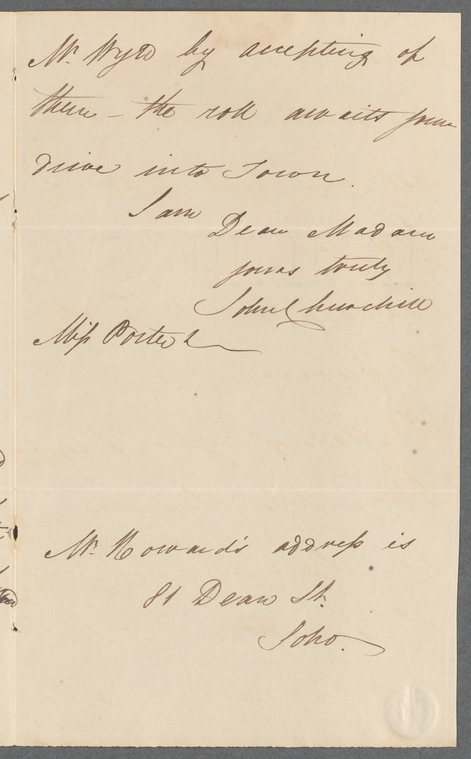 Mr. Wyld by accepting of
them - the roll awaits your
drive into Town.
I am
Dear Madam
yours truly
John Churchill
Miss Porter
Mr. Howard's address is
81 Dean St.
Soho.